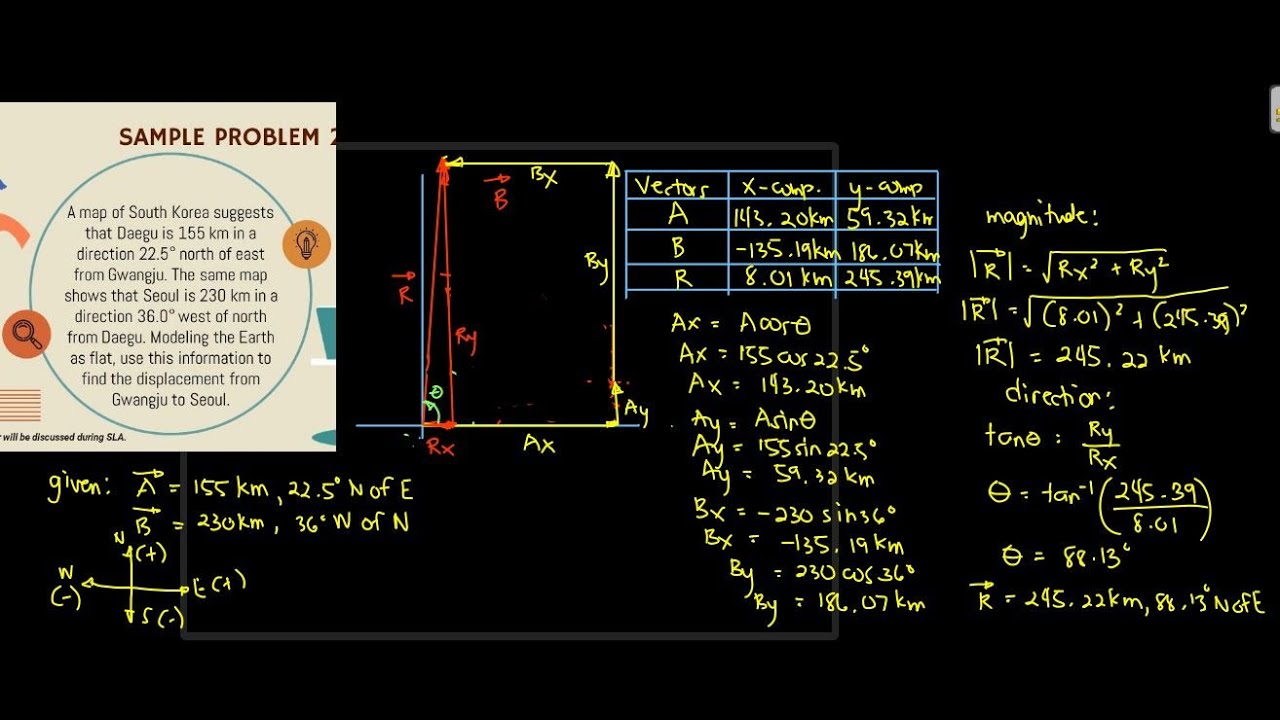 SAMPLE PROBLEM 2
A map of South Korea suggests
that Daegu is 155 km in a
direction 22.5° north of east
from Gwangju. The same map
shows that Seoul is 230 km in a
direction 36.0° west of north
from Daegu. Modeling the Earth
as flat, use this information to
find the displacement from
Gwangju to Seoul.
r will be discussed during SLA.
given: A = 155 km, 22.5° N of E
B = 230km, 36° W of N
N (+)
W (-)
E (+)
S (-)
Bx
B
By
R
Ry
θ
Rx
Ax
Ay
Vectors x-comp. y-comp
A 143.20km 59.32km
B -135.19km 186.07km
R 8.01 km 245.39km
Ax = A cosθ
Ax = 155 cos 22.5°
Ax = 143.20km
Ay = Asinθ
Ay = 155 sin 22.5°
Ay = 59.32 km
Bx = -230 sin 36°
Bx = -135.19 km
By = 230 cos 36°
By = 186.07 km
magnitude:
|R| = √Rx² + Ry²
|R| = √(8.01)² + (245.39)²
|R| = 245.22 km
direction:
tanθ = Ry/Rx
θ = tan⁻¹(245.39/8.01)
θ = 88.13°
R = 245.22km, 88.13° N of E